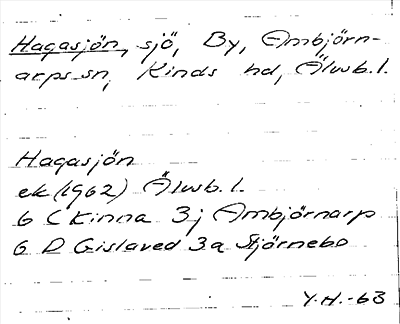 Hagasjön, sjö, By, Ambjörn-
arps sn, Kinds hd, Älvsb. l.
Hagasjön
ek (1962) Älvsb. l.
6 C Kinna 3 j Ambjörnarp
6 D Gislaved 3 a Stjörnebo
Y.H.-63